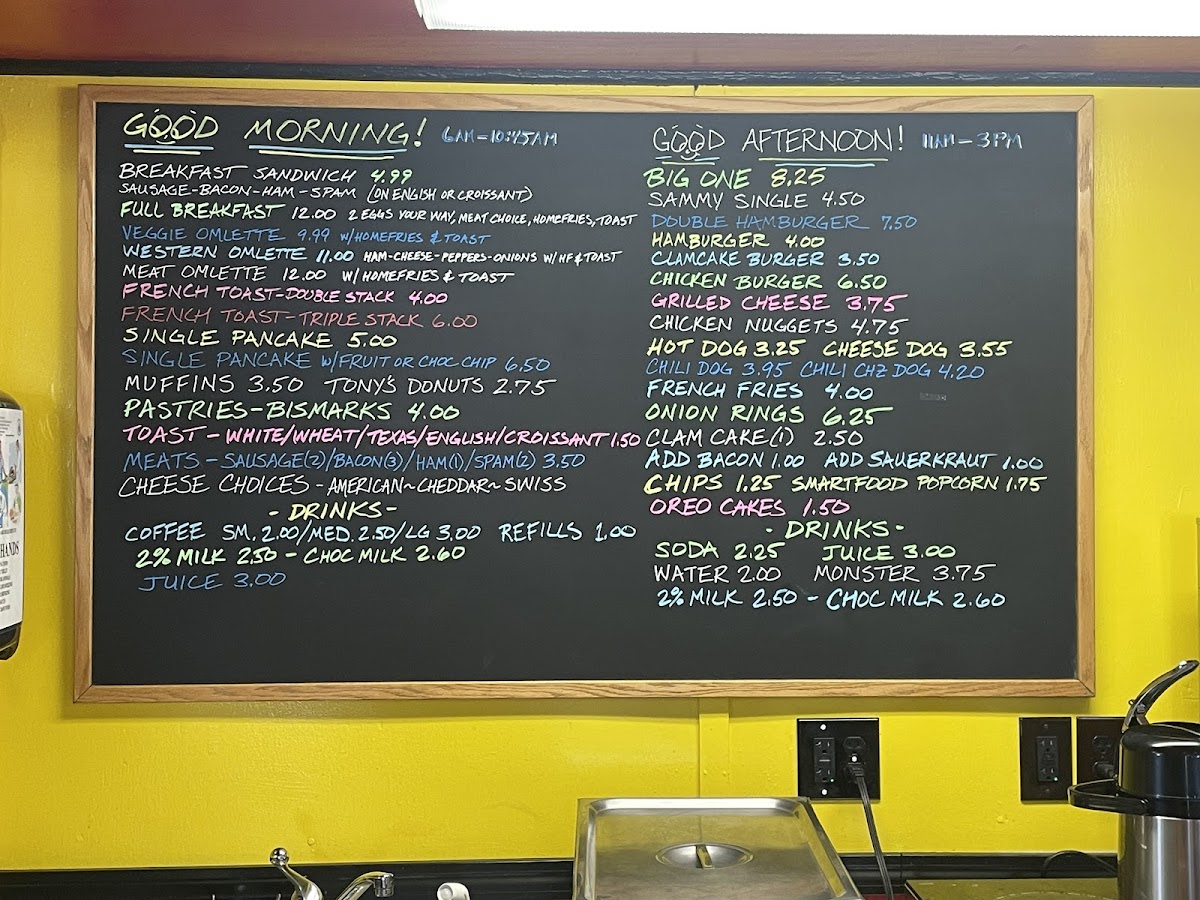 GOOD MORNING! 6AM-10:45AM
BREAKFAST SANDWICH 4.99
SAUSAGE-BACON-HAM-SPAM (ON ENGISH OR CROISSANT)
FULL BREAKFAST 12.00 2 EGGS YOUR WAY, MEAT CHOICE, HOMEFRIES, TOAST
VEGGIE OMLETTE 9.99 W/HOMEFRIES & TOAST
WESTERN OMLETTE 11.00 HAM-CHEESE-PEPPERS-ONIONS W/HF & TOAST
MEAT OMLETTE 12.00 W/HOMEFRIES & TOAST
FRENCH TOAST-DOUBLE STACK 4.00
FRENCH TOAST-TRIPLE STACK 6.00
SINGLE PANCAKE 5.00
SINGLE PANCAKE W/FRUIT OR CHOC CHIP 6.50
MUFFINS 3.50 TONY'S DONUTS 2.75
PASTRIES-BISMARKS 4.00
TOAST-WHITE/WHEAT/TEXAS/ENGLISH/CROISSANT 1.50
MEATS-SAUSAGE(2)/BACON(3)/HAM(1)/SPAM(2) 3.50
CHEESE CHOICES-AMERICAN~CHEDDAR~SWISS
-DRINKS-
COFFEE SM. 2.00/MED. 2.50/LG 3.00 REFILLS 1.00
2% MILK 2.50 - CHOC MILK 2.60
JUICE 3.00
GOOD AFTERNOON! 11AM-3PM
BIG ONE 8.25
SAMMY SINGLE 4.50
DOUBLE HAMBURGER 7.50
HAMBURGER 4.00
CLAMCAKE BURGER 3.50
CHICKEN BURGER 6.50
GRILLED CHEESE 3.75
CHICKEN NUGGETS 4.75
HOT DOG 3.25 CHEESE DOG 3.55
CHILI DOG 3.95 CHILI CHZ DOG 4.20
FRENCH FRIES 4.00
ONION RINGS 6.25
CLAM CAKE(1) 2.50
ADD BACON 1.00 ADD SAUERKRAUT 1.00
CHIPS 1.25 SMARTFOOD POPCORN 1.75
OREO CAKES 1.50
-DRINKS-
SODA 2.25 JUICE 3.00
WATER 2.00 MONSTER 3.75
2% MILK 2.50 - CHOC MILK 2.60
HANDS